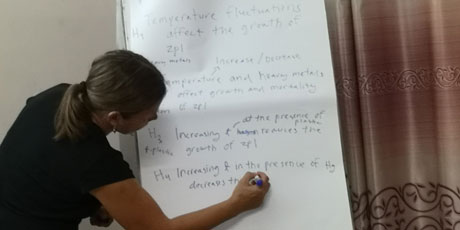 Temperature fluctuations
H1 affect the growth of
zpl
heavy metals Increase / Decrease
Temperature and heavy metals
affect growth and mortality
of zpl
at the presence of
plastic
H3 Increasing t reduces the
plastic growth of zpl
H4 Increasing t in the presence of Hg
decreases th